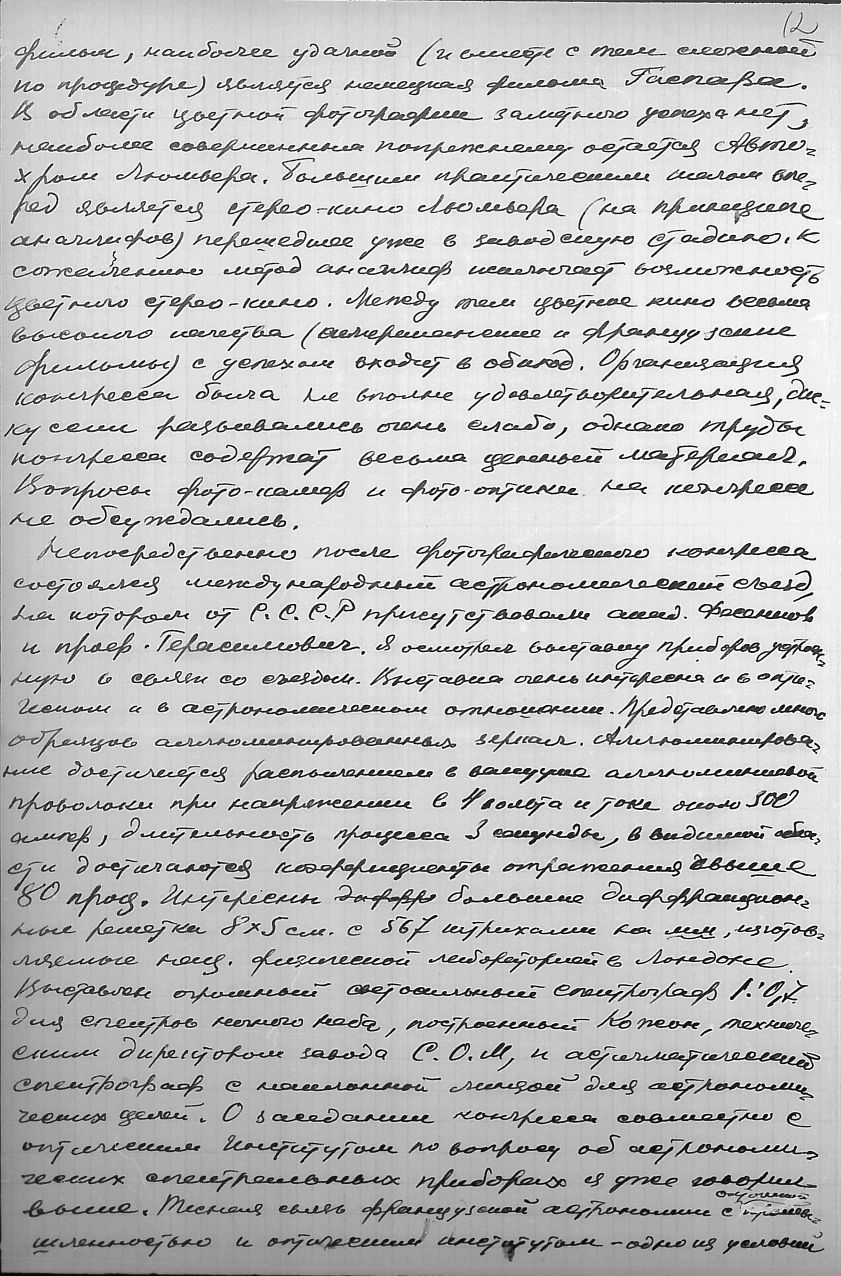 12
фильм, наиболее удачной (и вместе с тем сложной
по процедуре) является немецкая фильма Гаспара.
В области цветной фотографии заметного успеха нет,
наиболее совершенным попрежнему остается Авто-
хром Люмьера. Большим практическим шагом впе-
ред является стерео-кино Люмьера (на принципе
анаглифов) перешедшее уже в заводскую стадию. К
сожалению метод анаглиф исключает возможность
цветного стерео-кино. Между тем цветное кино весьма
высокого качества (американские и французские
фильмы) с успехом входит в обиход. Организация
конгресса была не вполне удовлетворительная, дис-
кусси развивались очень слабо, однако труды
конгресса содержат весьма ценный материал.
Вопросы фото-камер и фото-оптики на конгрессе
не обсуждались.
Непосредственно после фотографического конгресса
состоялся международный астрономический съезд,
на котором от С.С.С.Р присутствовали акад. Фесенков
и проф. Герасимович. Я осмотрел выставку приборов устроен-
ную в связи со съездом. Выставка очень интересна и в опти-
ческом и в астрономическом отношении. Представлено много
образцов аллюминированных зеркал. Аллюминирова-
ние достигается распылением в вакууме аллюминиевой
проволоки при напряжении в 4 вольта и токе около 300
ампер, длительность процесса 3 секунды, в видимой обла-
сти достигаются коэффициенты отражения свыше
80 проц. Интересны большие диффракцион-
ные решетки 8×5 см. с 567 штрихами на мм, изготов-
ляемые нац. физической лабораторией в Лондоне.
Выставлен огромный светосильный спектрограф 1:0,7
для спектров ночного неба, построенный Кожон, техниче-
ским директором завода С.О.М, и астигматический
спектрограф с наклонной линзой для астрономи-
ческих целей. О заседании конгресса совместно с
оптическим Институтом по вопросу об астрономи-
ческих спектральных приборах я уже говорил
выше. Тесная связь французской астрономии с оптической промы-
шленностью и оптическим институтом – одно из условий